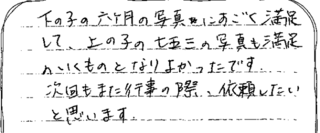 下の子の六ヶ月の写真にすごく満足
して、上の子の七五三の写真も満足
がいくものとなりよかったです
次回もまた行事の際、依頼したい
と思います.